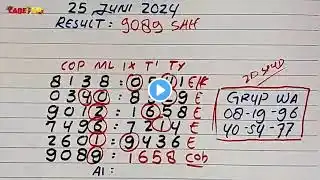 25 JUNI 2024
RESULT : 9089 SAH
COP ML 1X T' TY
8138 : 0
0340 : 8
9012 : 1658 E
7496 : 7214 E
2601 : 9436 E
9089 : 1658 Cob
A1 :
GRUP WA
08-19-96
40-54-77